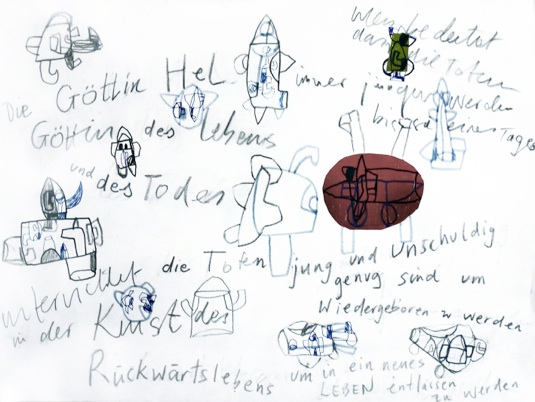 Die Göttin Hel
Göttin des Lebens
und des Todes
unterrichtet die Toten
in der Kunst des
Rückwärtslebens
bedeutet
dass die Toten
immer jünger werden
bis sie eines Tages
jung und unschuldig
genug sind um
Wiedergeboren zu werden
um in ein neues
LEBEN entlassen
zu werden